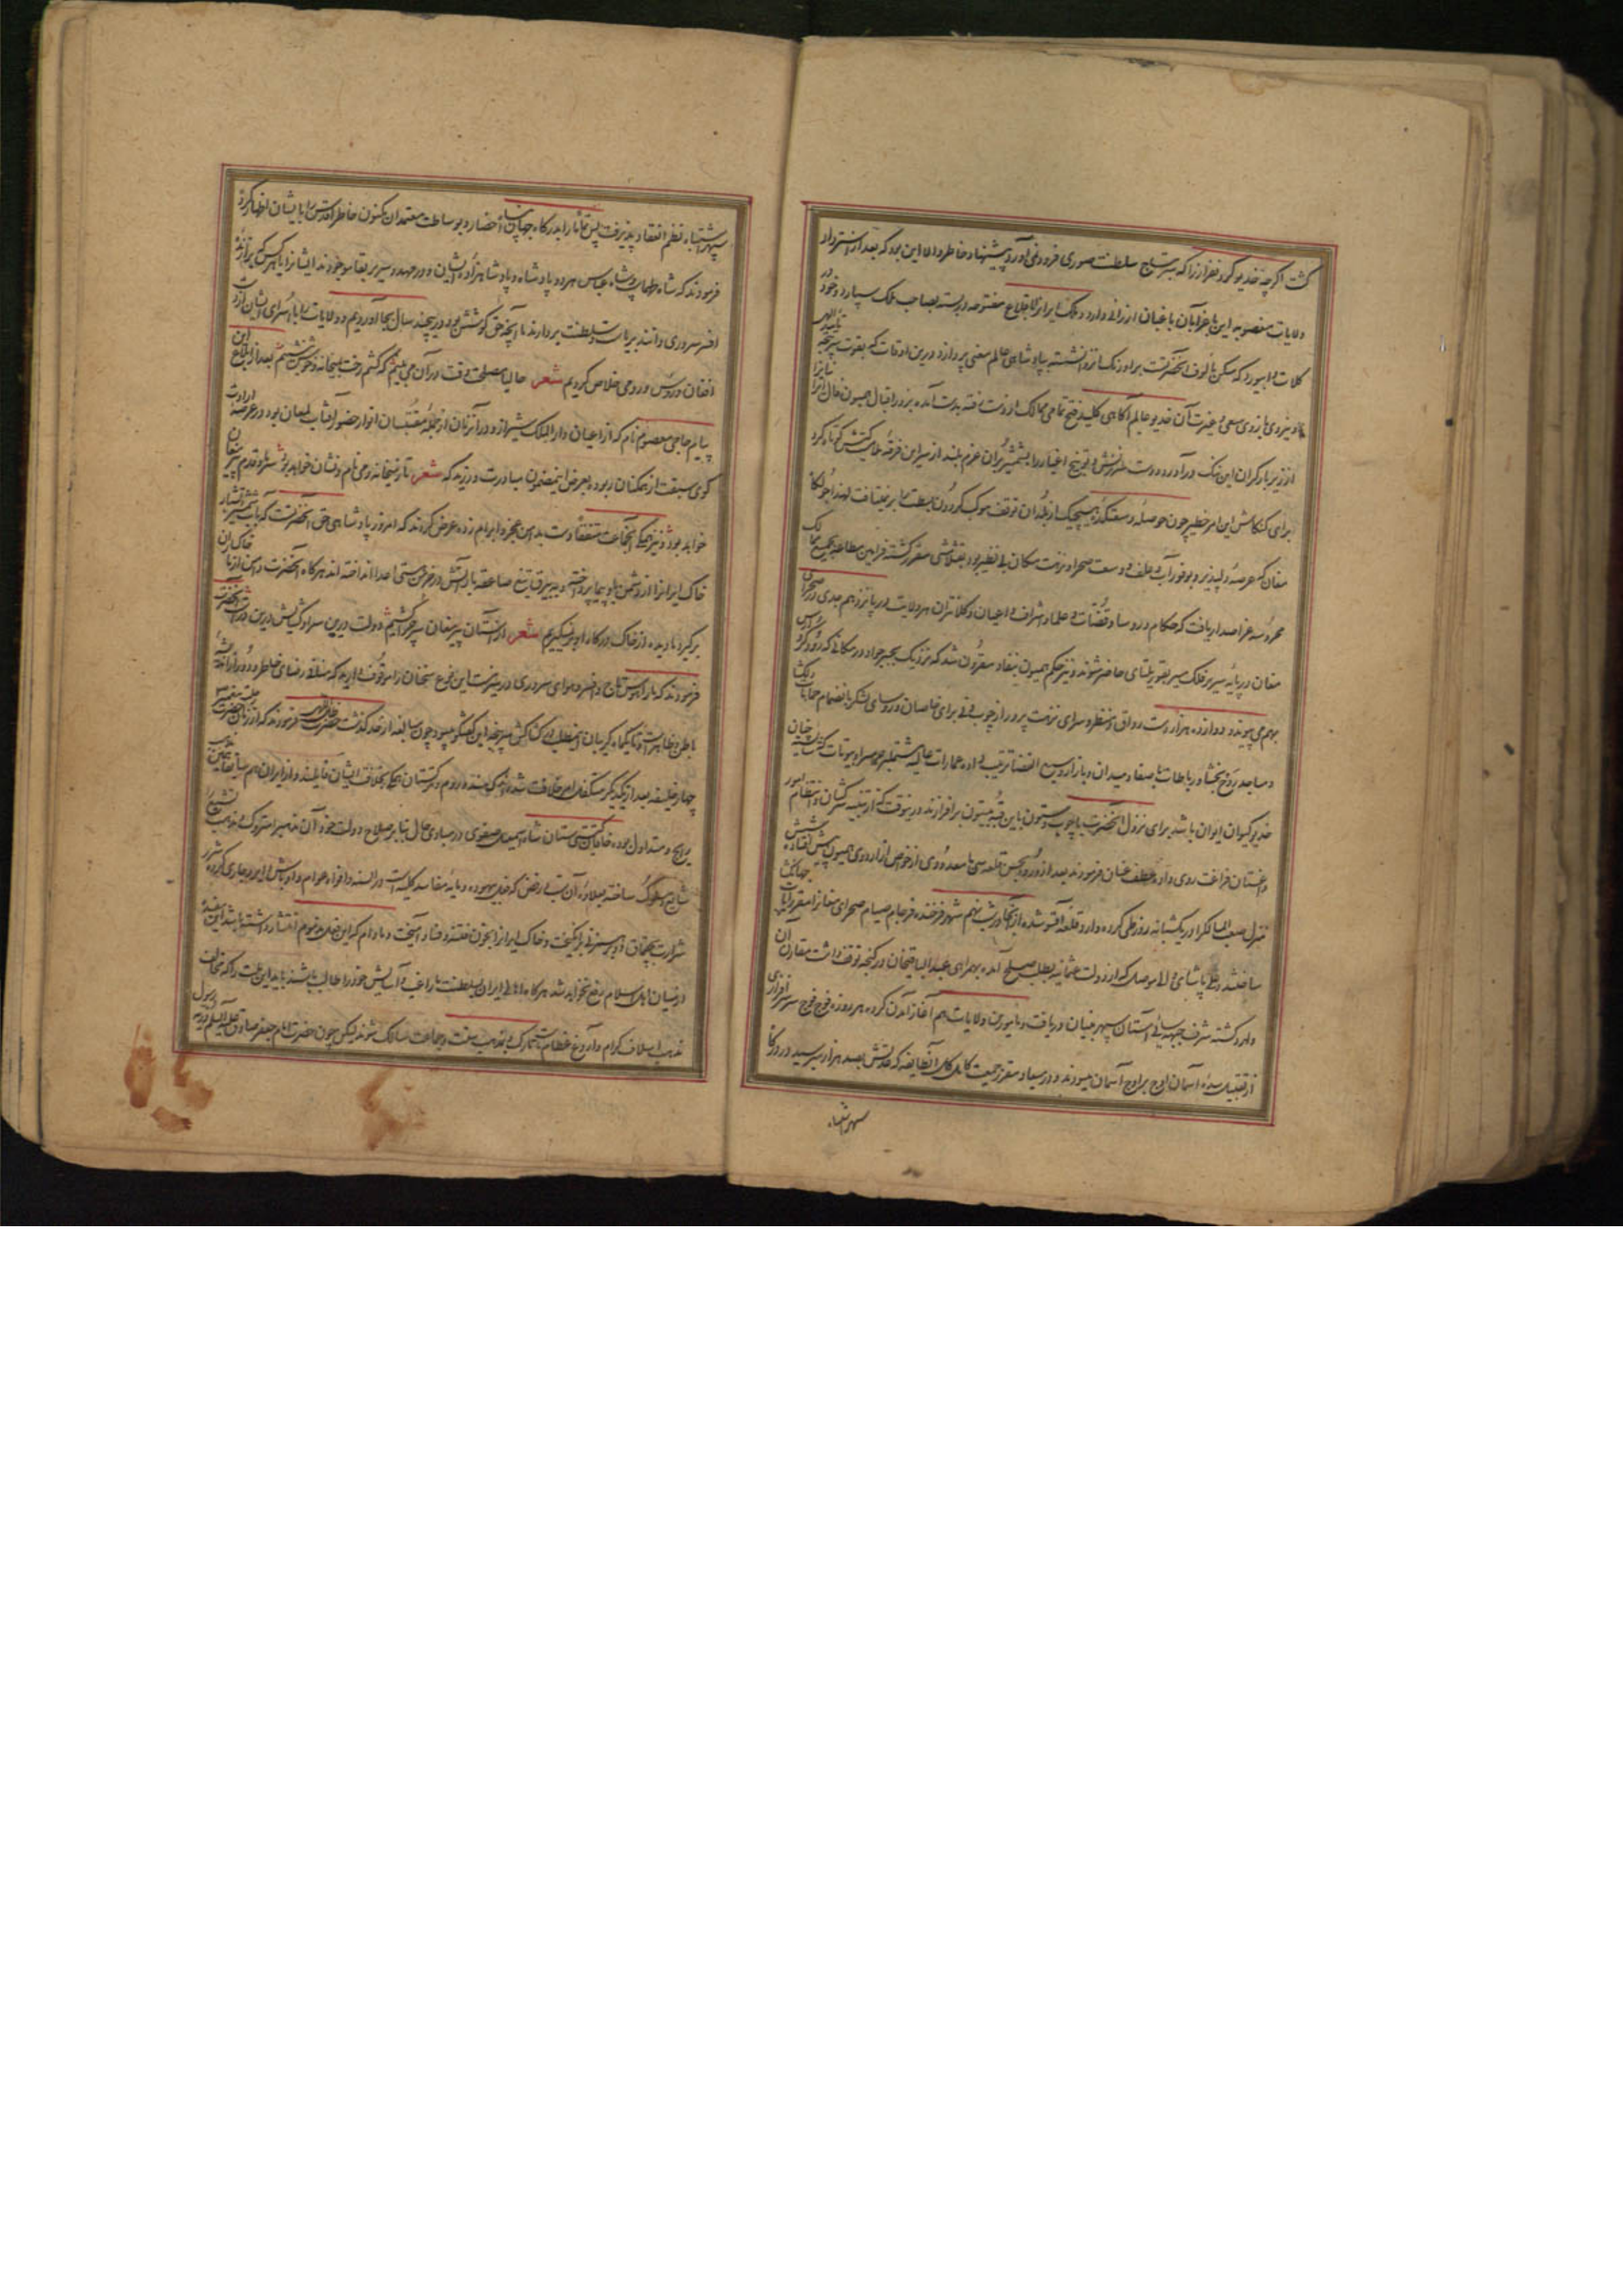 گشت اگرچه خدیو گردنفراز را که بسر تاج سلطنت صوری فرو نمی‌آورد پیشنهاد خاطر والا این بود که بعد از استرداد
ولایات مغصوبه این باغ را بآن باغبان ارزانی دارد و ملک ایران را با قلاع مفتوحه دربسته بصاحب ملک سپارد و خود در
کلات و ابیورد که مسکن مألوف آنحضرتست بر اورنگ انزوا نشسته بپادشاهی عالم معنی پردازد درین اوقات که بقوت سرپنجه تأیید الهی
و نیروی بازوی سعی و غیرت آن خدیو عالم آگاهی کلید فتح تمامی ممالک از دست رفته بدست آمده بزور اقبال همیون فال
از زیر بار گران این ننگ درآورده دست سرزنش و توبیخ اغیار را بشمشیر بران عزم بلند از سر این فرقه ملامت کش کوتاه کرد
برای کنکاش این امر خطیر چون حوصله و سعتکده هیچیک از بلدان توقف موکب گردون بسطت را برنمیتافت لهذا جولگاه
مغان که عرصه دلپذیر و بوفور آب و علف و وسعت صحرا و نزهت مکان بی نظیر بود بقشلامشی مقرر گشته فرامین مطاعه بجمیع ممالک
محروسه عز اصدار یافت که حکام و روسا و قضات و علما و اشراف و اعیان و کلانتران هر ولایت در پانزدهم جدی در صحرای
مغان در پایه سریر فلک مسیر بقوریلتای حاضر شوند و نیز حکم همیون بنفاذ مقرون شد که نزدیک بجسر جواد در مکانی که رود کر و ارس
بهم می پیوندد دوازده هزار دست رواق و منظر و سرای نزهت پرور از چوب و نی برای خاصان و روسای لشکر بانضمام حمامات دلگشا
و مساجد روح بخشا و رباطات باصفا و میدان و بازار وسیع الفضا ترتیب داده عمارات عالیه مشتمل بر حرمسرا و بیوتات که شایسته چنان
خدیو کیوان ایوان باشد برای نزول آنحضرت با چوب و ستون باین قبه بیستون برافرازند درینوقت که از تنبیه سرکشان و انتظام امور
داغستان فراغت روی داده عطف عنان فرمودند بعد از ورود بحسن قلعه سی با معدودی از خواص از اردوی همیون پیش افتاده شش
منزل صعب المسالک را در یکشبانه روز طی کرده وارد قلعه آقسو شده از آنجا در شب نهم شهر فرخنده فرجام صیام صحرای مغان را مقر رایات جهانگشا
ساختند و علی پاشای والی موصل که از دولت عثمانیه بطلب صلح آمده بهمراهی عبدالباقیخان در گنجه توقف داشت مقارن آن
وارد گشته شرف جبهه سائی آستان سپهر بنیان دریافت و مأمورین ولایات هم آغاز آمدن کرده هر روزه فوج فوج سر سرافرازی
از تقبیل سده آسمان اوج بر اوج آسمان میسودند و در میعاد مقرر جمعیت کامل کل آنطایفه که عدتش بصد هزار میرسید در درگاه
سپهر اشتباه
سپهر اشتباه نظم انعقاد پذیرفت پس همگنان را بدرگاه جهان پناه احضار و بوساطت معتمدان مکنون خاطر اقدس را بایشان اظهار کرد
فرمودند که شاه طهماسب و شاه عباس هر دو پادشاه و پادشاهزاده ایشان و در مهد و سریر بقا موجودند ایشانرا یا هر کس که برازنده
افسر سروری دانند بریاست و سلطنت بردارند ما آنچه حق کوشش بود درین چند سال بجا آوردیم و ولایات را با اسرای ایشان از دست
افغان و روس و رومی خلاص کردیم شعر حالیا مصلحت وقت در آن می بینم که کشم رخت بمیخانه و خوش بنشینم بعد از ابلاغ این
پیام حاجی معصوم نام که از اعیان دارالملک شیراز و در آنزمان از جمله مقتبسان انوار حضور آفتاب لمعان بود در عرصه ارادت
گوی سبقت از همگنان ربوده بعرض این مضمون مبادرت ورزید که شعر تا ز میخانه و می نام و نشان خواهد بود سر ما خاک قدم پیر مغان
خواهد بود و نیز همگی آنجماعت متفقا دست بدامن عجز و ابرام زده عرض کردند که امروز پادشاهی حق آنحضرتست که بآب شمشیر آتشبار
خاک ایرانرا از دشمن بادپیما پرداخته و ببرق تیغ صاعقه بار آتش در خرمن هستی اعدا انداخته اند هرگاه آنحضرت دامن از ما خاکساران
برگیرد ما دیده از خاک درگاه او برنگیریم شعر از آستان پیر مغان سر چرا کشیم دولت درین سرا و گشایش درین درست آنحضرت
فرمودند که ما را هوس تاج و افسر و هوای سروری در سر نیست این نوع سخنان را موقوف دارید که منافی رضای خاطر و دور از اندیشه
باطن و ظاهرست و تا یکماه گریبان این مطلب در کشاکش سرپنجه این گفتگو میبود چون مبالغه از حد گذشت حضرت ظل اللهی فرمودند که از زمان حضرت
چهار خلیفه بعد از یکدیگر متکفل امر خلافت شده اند که هند و روم و ترکستان همگی بخلافت ایشان قایلند و در ایران هم سابقا همین مذهب
رایج و متداول بوده خاقان گیتی ستان شاه اسمعیل صفوی در مبادی حال بنابر صلاح دولت خود آن مذهب را متروک و مذهب تشیع را
شایع و مسلوک ساخته بعلاوه آن سب و رفض که فعل بیهوده و مایه مفاسد کلیه است در السنه و افواه عوام و اوباش دایر و جاری کرده شرر
شرارت بچخماق دوبرهمزنی برانگیخت و خاک ایرانرا بخون فتنه و فساد آمیخت و مادام که این فعل مذموم انتشار داشته باشد این مفسده
از میان اهل اسلام رفع نخواهد شد هرگاه اهالی ایران بسلطنت ما راغب و آسایش خود را طالب باشند باید این ملت را که مخالف
مذهب اسلاف کرام و آروغ عظام ماست تارک و بمذهب سنت و جماعت سالک شوند لیکن چون حضرت امام جعفر صادق علیه السلام ذریه رسول